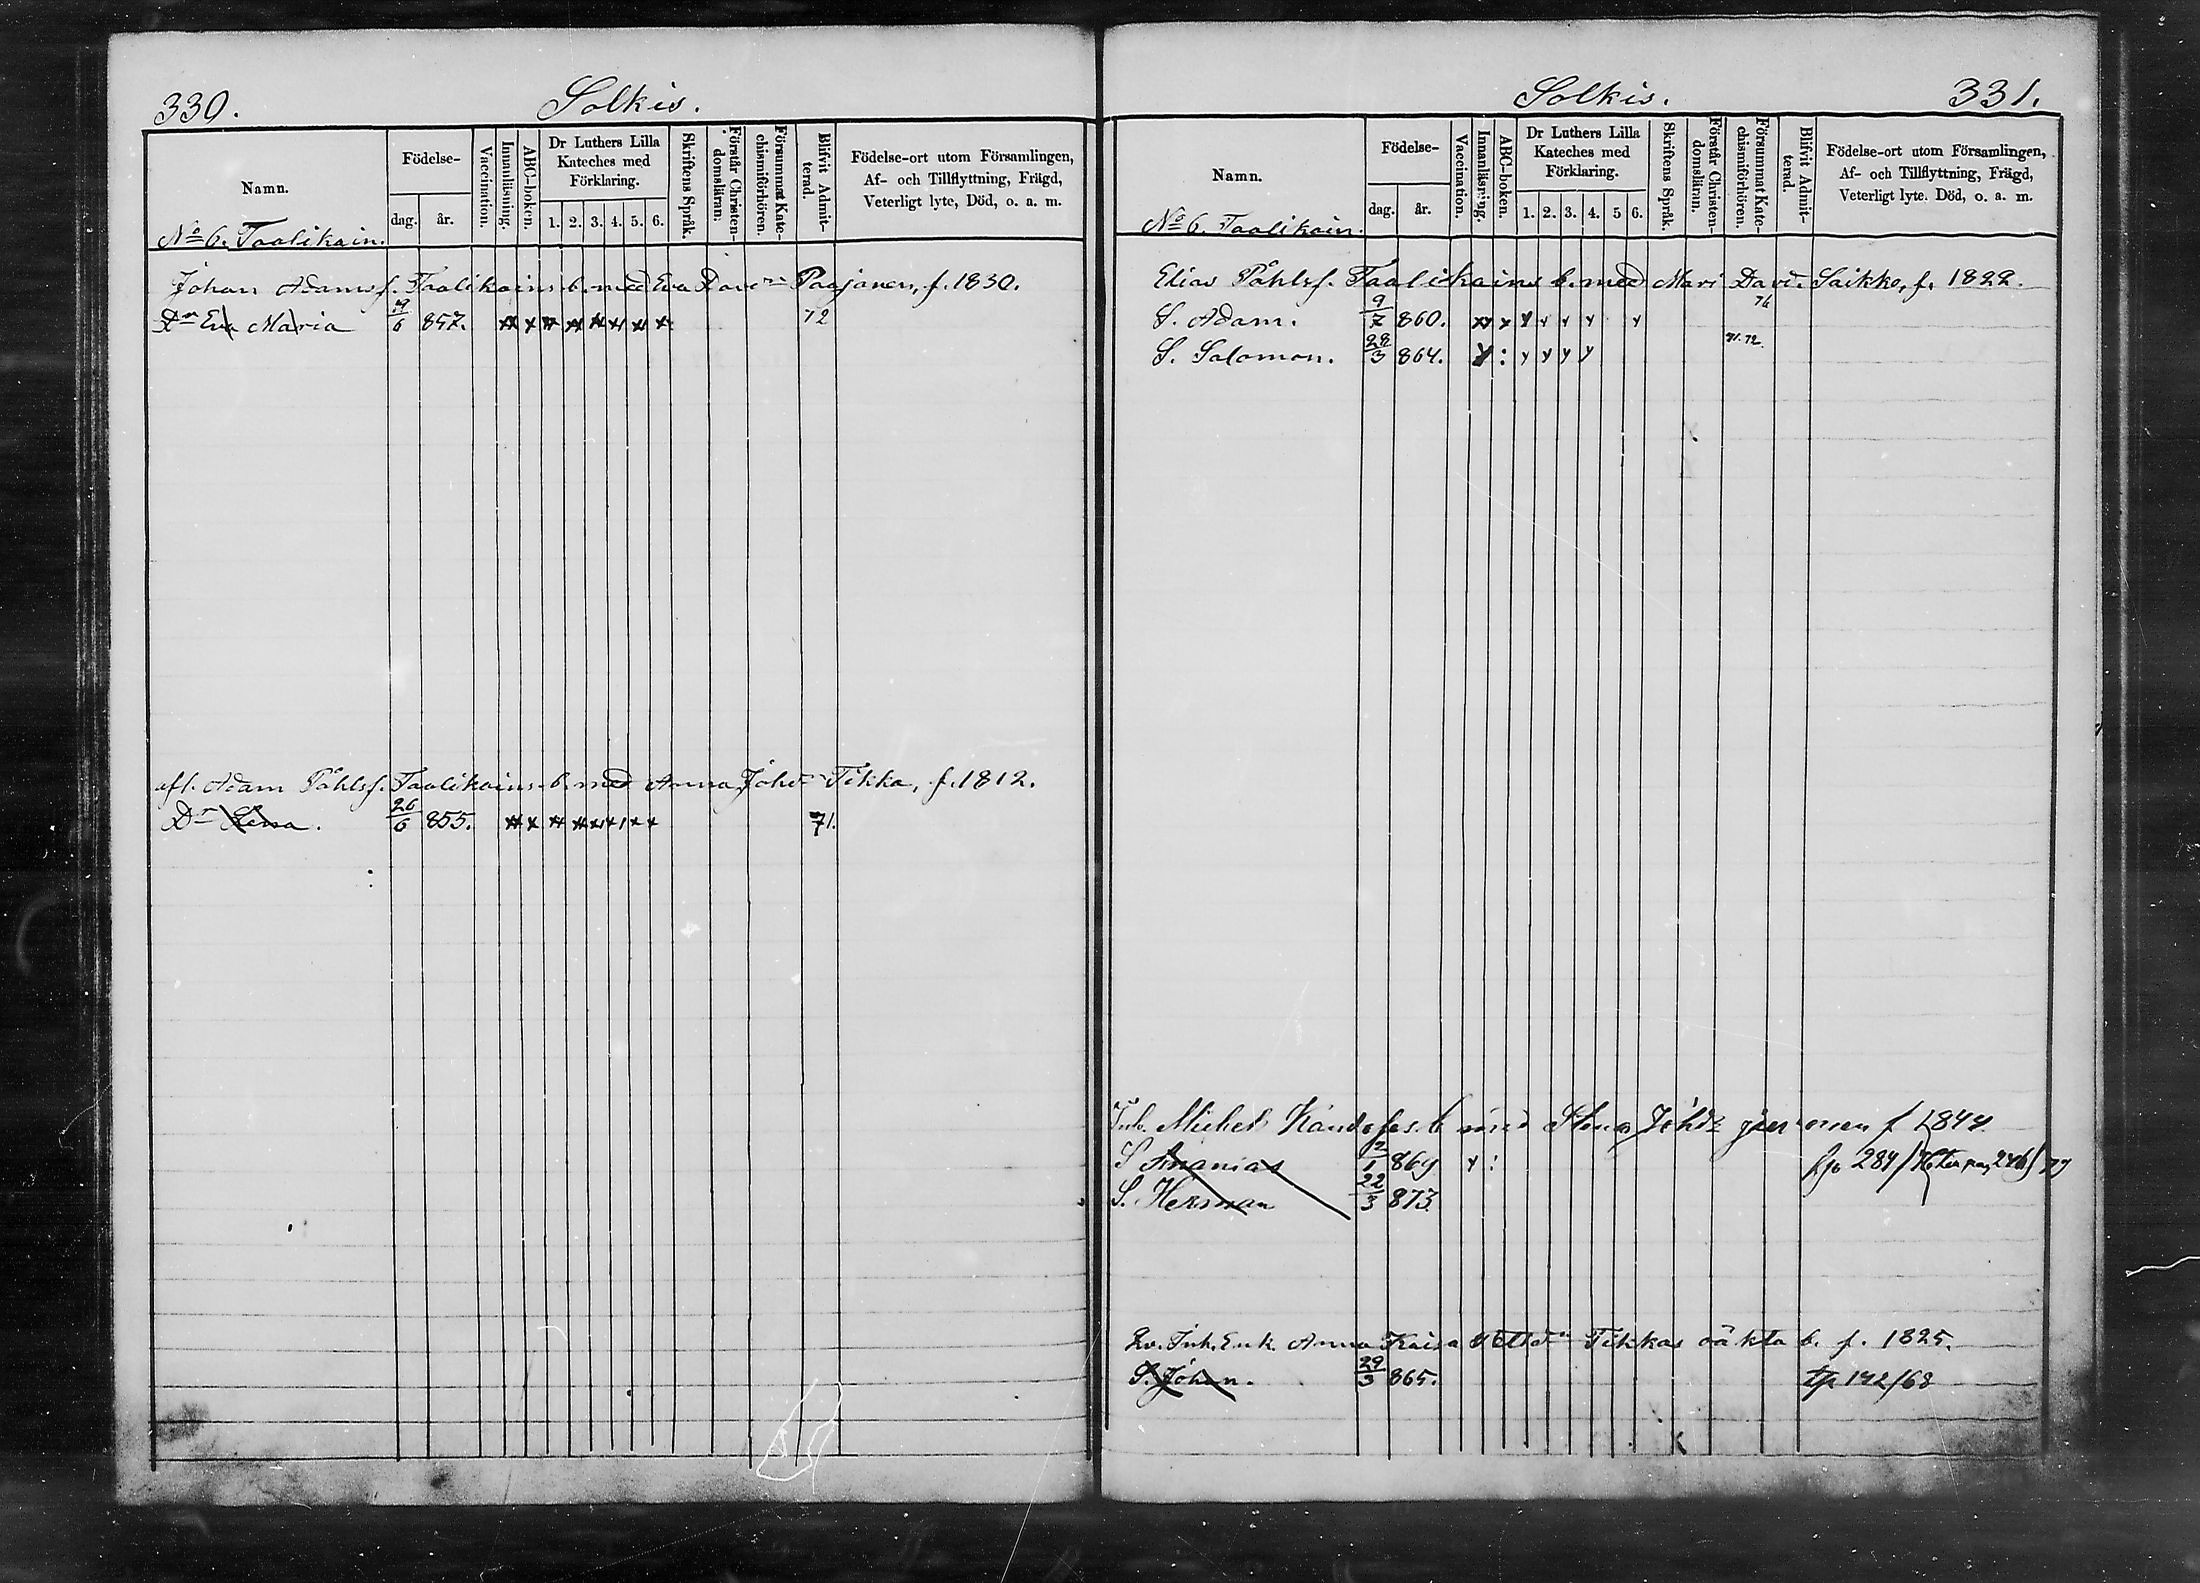 330. Solkis.
Namn.
Födelse-
dag. år.
Vaccination.
Innanläsning.
ABC-boken.
Dr Luthers Lilla
Kateches med
Förklaring.
1. 2. 3. 4. 5. 6.
Skriftens Språk.
Förstår Christen-
domsläran.
Försummat Kate-
chismiförhören.
Blifvit Admit-
terad.
Födelse-ort utom Församlingen,
Af- och Tillflyttning, Frägd,
Veterligt lyte, Död, o. a. m.
No 6. Taalikain.
Johan Adamsf. Taalikains b. med Eva Dav Paajanen, f. 1830.
Dr Eva Maria 6 857. 72
afl. Adam Påhlsf. Taalikains b. med Anna Johd Tikka, f. 1812.
Dr 26/6 855. 71.
Solkis. 331.
Namn.
Födelse-
dag. år.
Vaccination.
Innanläsning.
ABC-boken.
Dr Luthers Lilla
Kateches med
Förklaring.
1. 2. 3. 4. 5 6.
Skriftens Språk.
Förstår Christen-
domsläran.
Försummat Kate-
chismiförhören.
Blifvit Admit-
terad.
Födelse-ort utom Församlingen,
Af- och Tillflyttning, Frägd,
Veterligt lyte. Död, o. a. m.
No 6. Taalikain.
Elias Påhlsf. Taalikains b. med Mari Davd. Saikko, f. 1822.
S. Adam. 9/7 860. 74
S. Salomon. 28/3 864. 71. 72.
Inh. Michel b med Stina Johd f 1844
S Ananias 2/1 869 284/
S. Herman 22/3 873.
Inh. Enk. Anna Kaisa Tikkas oäkta b. f. 1825.
S. Johan. 29/3 865. 142/68